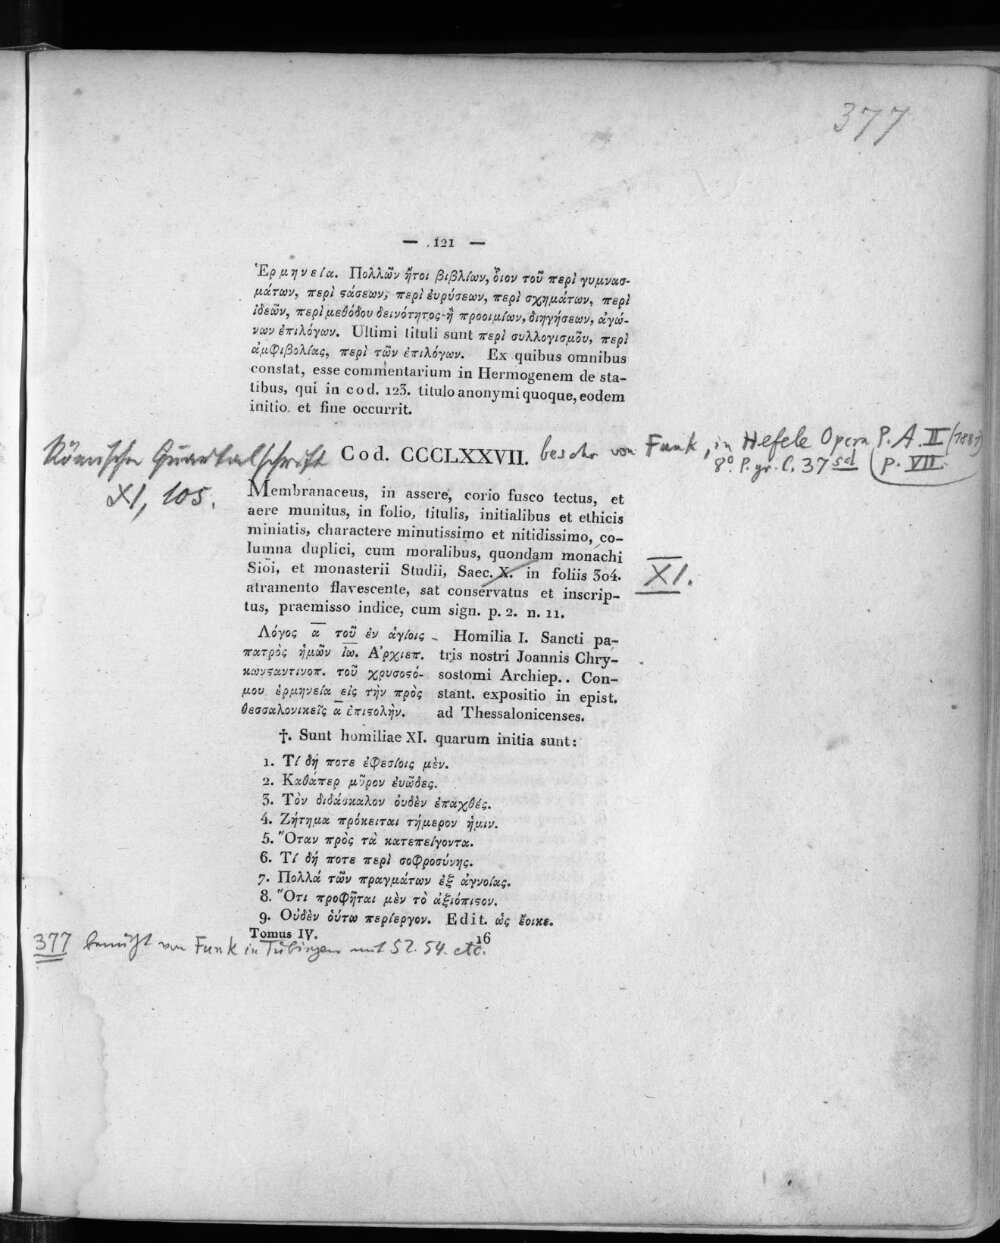 377
— 121 —
Ἑρμηνεία. Πολλῶν ἤτοι βιβλίων, ὅιον τοῦ περὶ γυμνασ-
μάτων, περὶ ϛάσεων, περὶ ἑυρύσεων, περὶ σχημάτων, περὶ
ἰδεῶν, περὶ μεθόδου δεινότητος· ἢ προοιμίων, διηγήσεων, ἀγώ-
νων ἐπιλόγων. Ultimi tituli sunt περὶ συλλογισμοῦ, περὶ
ἀμφιβολίας, περὶ τῶν ἐπιλόγων. Ex quibus omnibus
constat, esse commentarium in Hermogenem de sta-
tibus, qui in cod. 123. titulo anonymi quoque, eodem
initio et fine occurrit.
Römische Quartalschrift
XI, 105.
Cod. CCCLXXVII.
beschr von Funk, in Hefele Opera P. A. II (1881)
8° P. gr. C. 37 sd p. VII
Membranaceus, in assere, corio fusco tectus, et
aere munitus, in folio, titulis, initialibus et ethicis
miniatis, charactere minutissimo et nitidissimo, co-
lumna duplici, cum moralibus, quondam monachi
Sioi, et monasterii Studii, Saec. X. in foliis 304.
XI.
atramento flavescente, sat conservatus et inscrip-
tus, praemisso indice, cum sign. p. 2. n. 11.
Λόγος α τοῦ ἐν ἁγίοις
πατρὸς ἡμῶν ἰω. Ἀρχιεπ.
κωνϛαντινοπ. τοῦ χρυσοϛό-
μου ἑρμηνεία εἰς τὴν πρὸς
θεσσαλονικεῖς α ἐπιϛολήν.
Homilia I. Sancti pa-
tris nostri Joannis Chry-
sostomi Archiep.. Con-
stant. expositio in epist.
ad Thessalonicenses.
†. Sunt homiliae XI. quarum initia sunt:
1. Τί δή ποτε ἐφεσίοις μὲν.
2. Καθάπερ μῦρον ἐυῶδες.
3. Τὸν διδάσκαλον ὀυδὲν ἐπαχθές.
4. Ζήτημα πρόκειται τήμερον ἡμιν.
5. Ὅταν πρὸς τὰ κατεπείγοντα.
6. Τί δή ποτε περὶ σοφροσύνης.
7. Πολλά τῶν πραγμάτων ἐξ ἀγνοίας.
8. Ὅτι προφῆται μὲν τὸ ἀξιόπιϛον.
9. Ουδὲν ὁύτω περίεργον. Edit. ὡς ἔοικε.
Tomus IV. 16
377 benutzt von Funk in Tübingen mit 52. 54. etc.